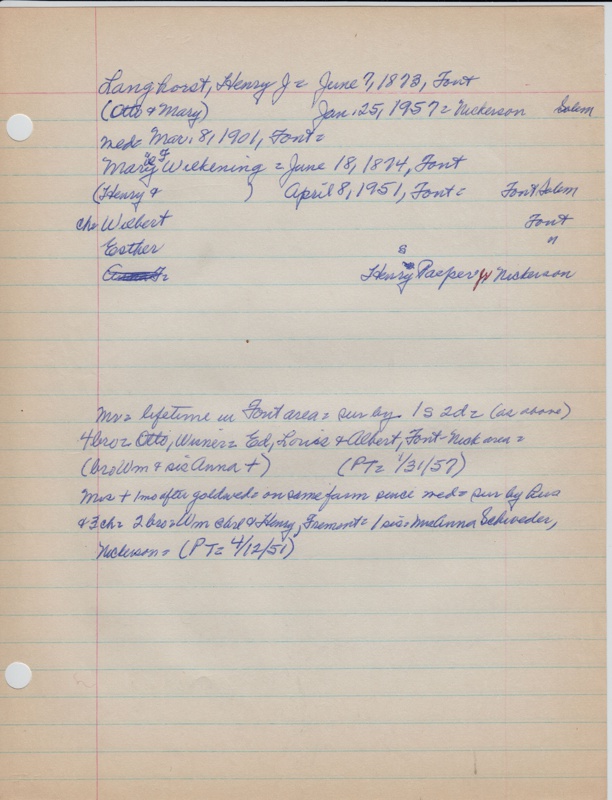 Langhorst, Henry J = June 7, 1873, Font
(Otto & Mary) Jan. 25, 1957 = Nickerson Salem
wed = Mar. 8, 1901, Font =
Mary Wilkening = June 18, 1874, Font
(Henry & ) April 8, 1951, Font = Font Salem
ch = Wilbert Font
Esther "
Henry Paeper Jr Nickerson
Mr = lifetime in Font area = sur by 1 s 2 d = (as above)
4 bro = Otto, Werner = Ed, Louis & Albert, Font - Nick area =
(bro Wm & sis Anna +) (PT = 1/31/57)
Mrs + 1 mo after gold wed = on same farm since wed = sur by
& 3 ch = 2 bro = Wm Carl & Henry, Fremont = 1 sis = Mrs Anna Schroeder,
Nickerson = (PT = 4/12/51)